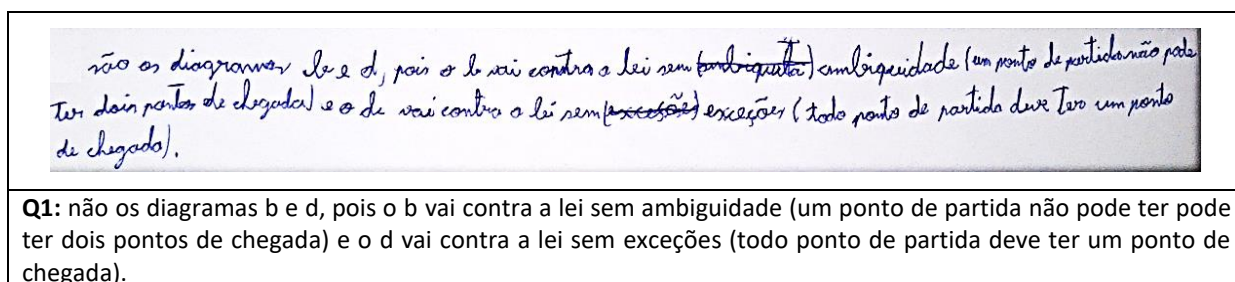 são os diagramas b e d, pois o b vai contra a lei sem (ambiguita) ambiguidade (um ponto de partida não pode
ter dois pontos de chegada) e o d vai contra a lei sem (exceções) exceções (todo ponto de partida deve ter um ponto
de chegada).
Q1: não os diagramas b e d, pois o b vai contra a lei sem ambiguidade (um ponto de partida não pode ter pode
ter dois pontos de chegada) e o d vai contra a lei sem exceções (todo ponto de partida deve ter um ponto de
chegada).